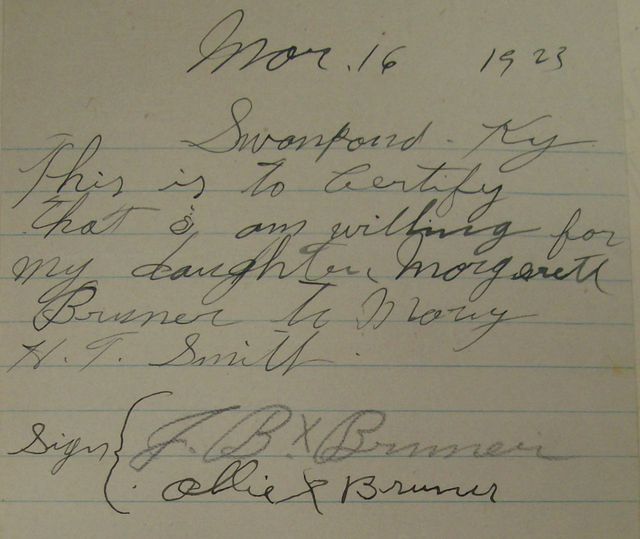 Mar. 16 1923
Swanpond. Ky.
This is to Certify
that i am willing for
my daughter, Margarett
Bruner to Mary
H. T. Smith.
Sign { J. B. X Bruner
Ollie X Bruner